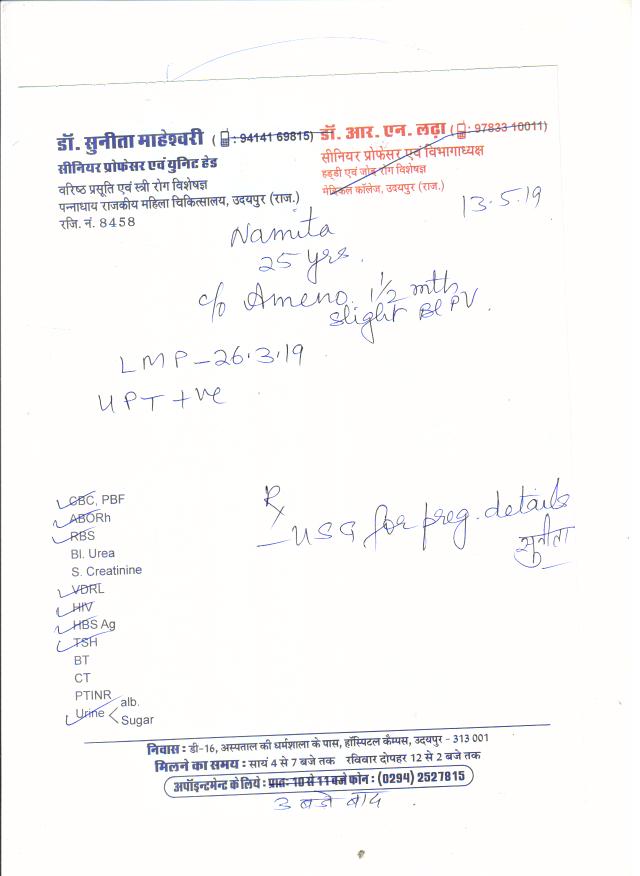 डॉ. सुनीता माहेश्वरी ( : 94141 69815)
सीनियर प्रोफेसर एवं युनिट हेड
वरिष्ठ प्रसूति एवं स्त्री रोग विशेषज्ञ
पन्नाधाय राजकीय महिला चिकित्सालय, उदयपुर (राज.)
रजि. नं. 8458
डॉ. आर. एन. लढ़ा ( : 97833 10011)
सीनियर प्रोफेसर एवं विभागाध्यक्ष
हड्डी एवं जोड़ रोग विशेषज्ञ
मेडिकल कॉलेज, उदयपुर (राज.)
13.5.19
Namita
25 yrs.
c/o Ameno. 1 1/2 mth
slight Bl PV.
LMP - 26.3.19
UPT +ve
CBC, PBF
ABORh
RBS
Bl. Urea
S. Creatinine
VDRL
HIV
HBS Ag
TSH
BT
CT
PTINR
Urine < alb.
Sugar
Rx
- USG for preg. details
सुनीता
निवास : डी-16, अस्पताल की धर्मशाला के पास, हॉस्पिटल कैम्पस, उदयपुर - 313 001
मिलने का समय : सायं 4 से 7 बजे तक रविवार दोपहर 12 से 2 बजे तक
अपॉइन्टमेन्ट के लिये : प्रातः 10 से 11 बजे फोन : (0294) 2527815
3 बजे बाद